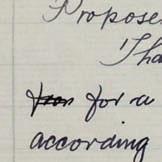 Propose
Tha
for a
according